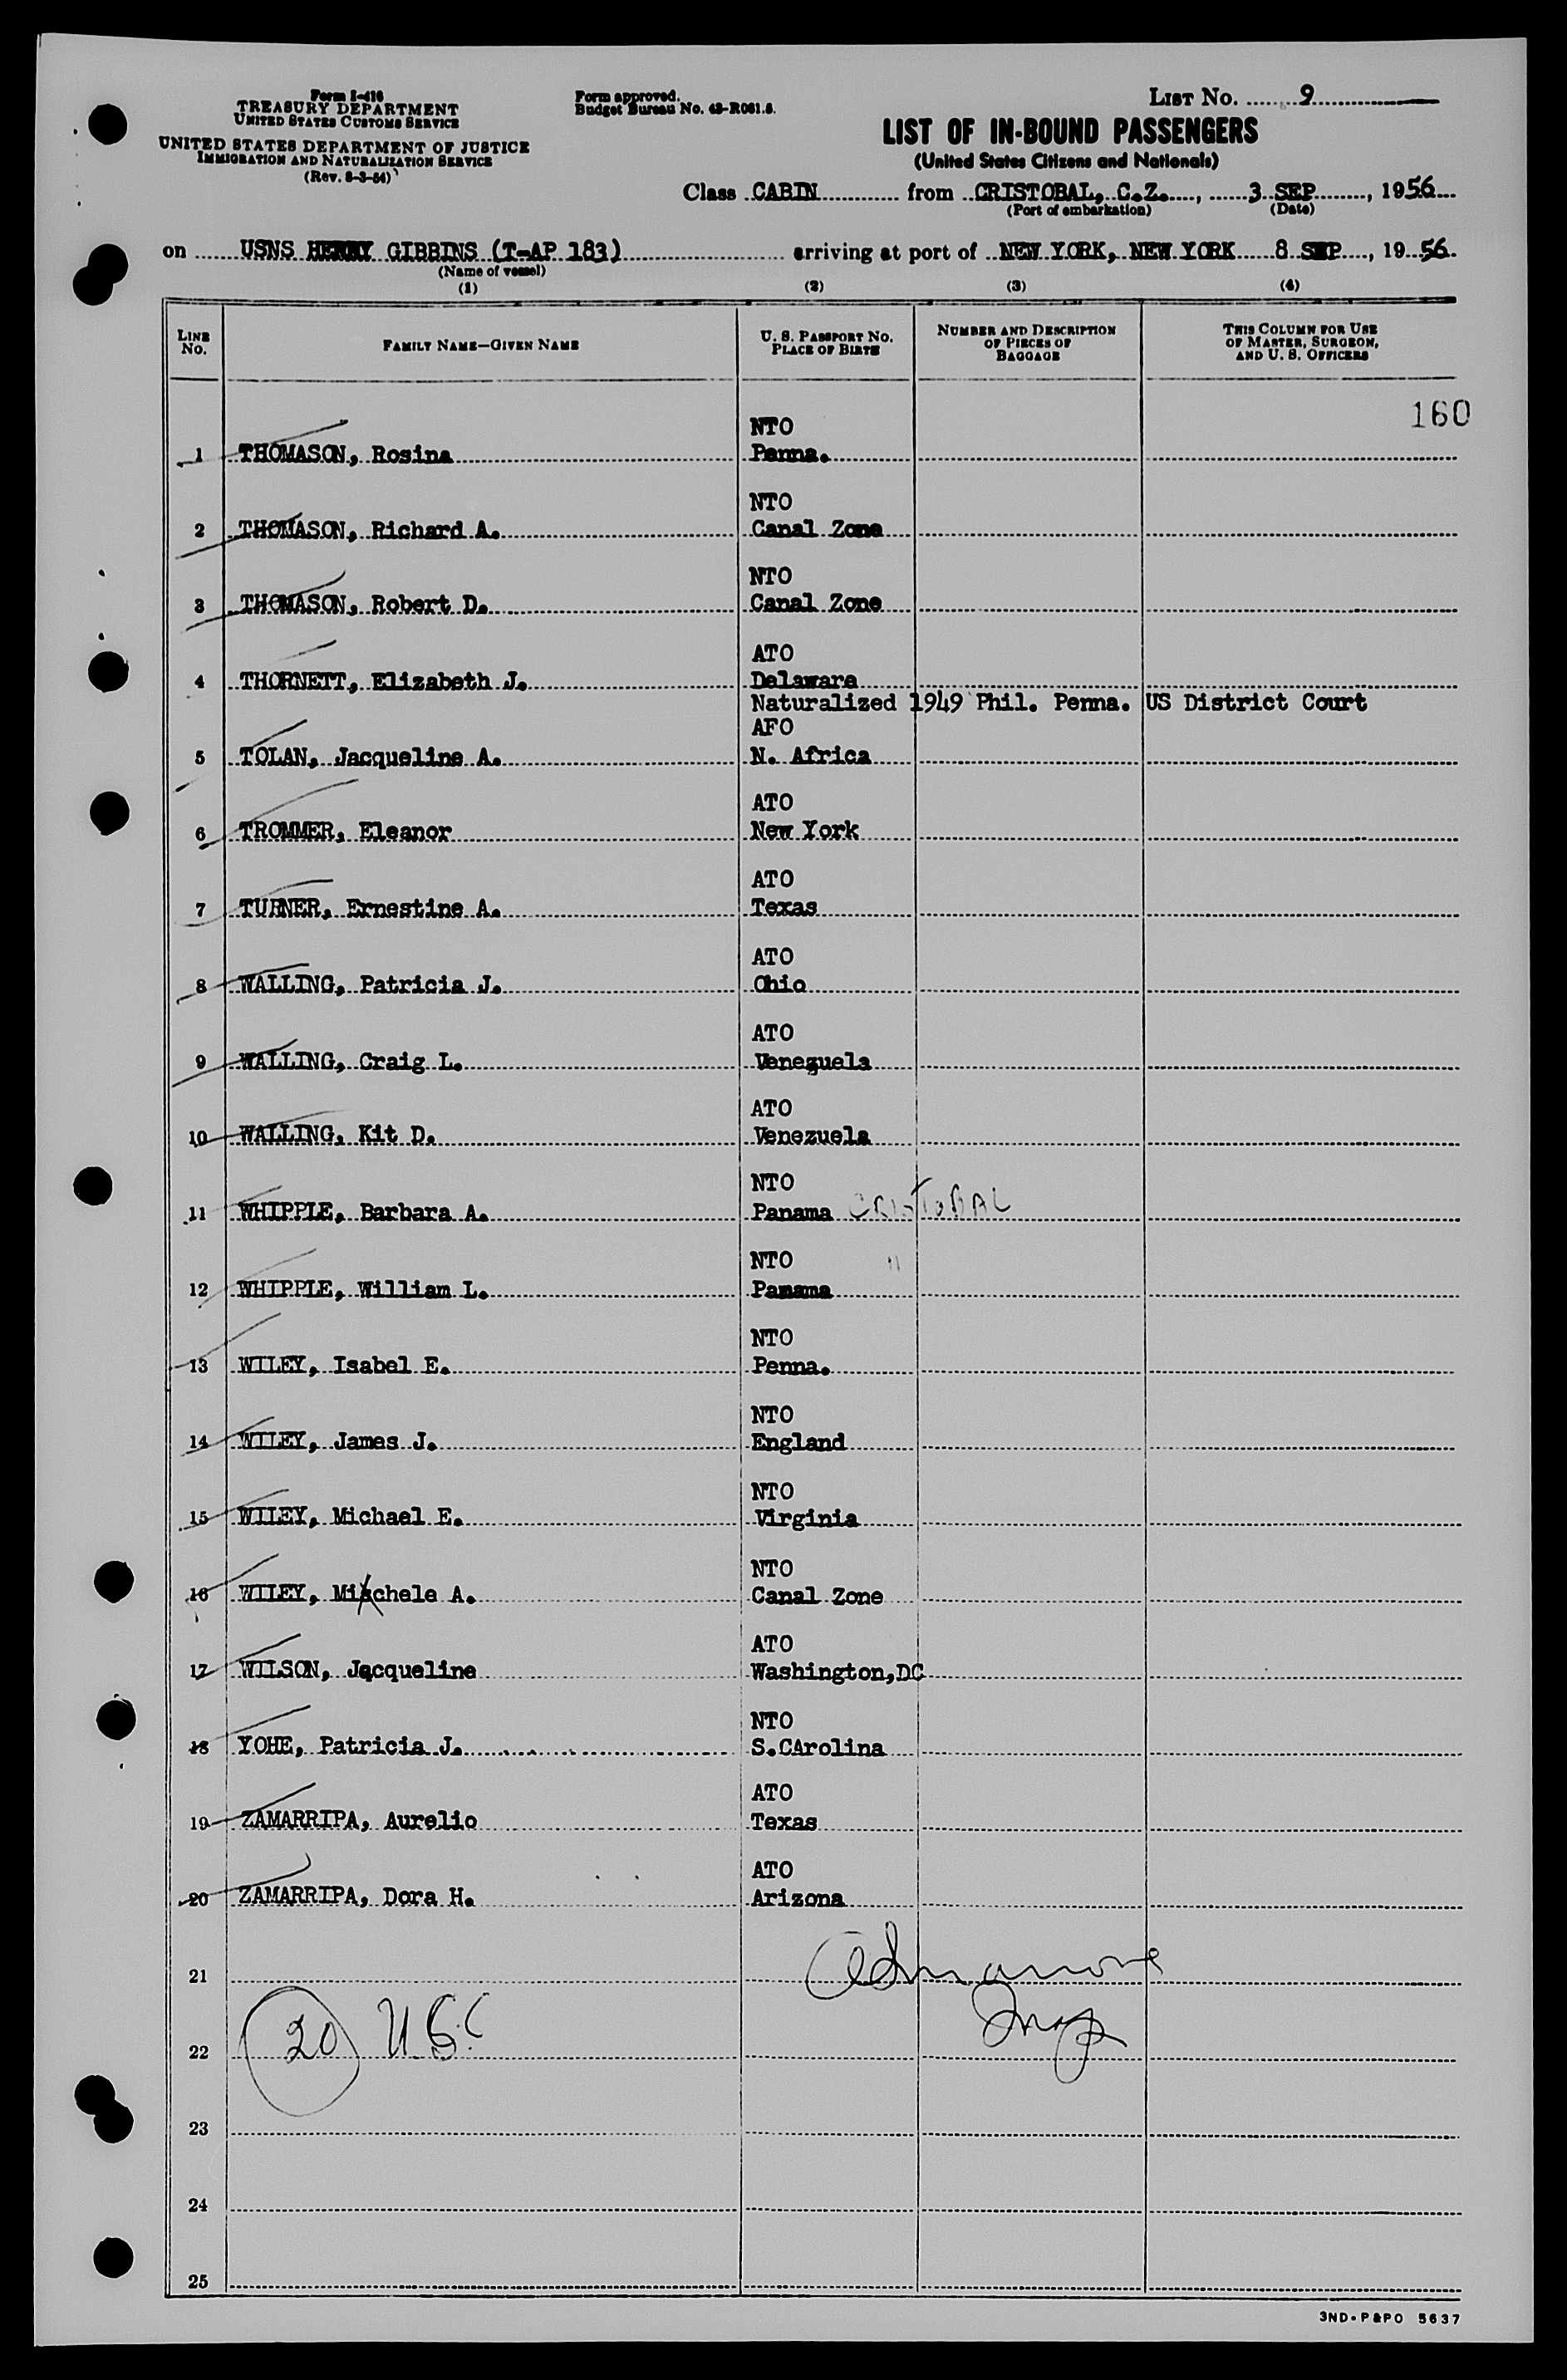 Form I-416
TREASURY DEPARTMENT
UNITED STATES CUSTOMS SERVICE
UNITED STATES DEPARTMENT OF JUSTICE
IMMIGRATION AND NATURALIZATION SERVICE
(Rev. 8-3-54)
Form approved.
Budget Bureau No. 43-R081.8.
LIST NO. 9
LIST OF IN-BOUND PASSENGERS
(United States Citizens and Nationals)
Class CABIN from CRISTOBAL, C.Z., 3 SEP, 1956
(Port of embarkation) (Date)
on USNS HENRY GIBBINS (T-AP 183) arriving at port of NEW YORK, NEW YORK 8 SEP, 1956
(Name of vessel)
(1) (2) (3) (4)
LINE NO. FAMILY NAME—GIVEN NAME U. S. PASSPORT NO. PLACE OF BIRTH NUMBER AND DESCRIPTION OF PIECES OF BAGGAGE THIS COLUMN FOR USE OF MASTER, SURGEON, AND U. S. OFFICERS
160
NTO
1 THOMASON, Rosina Penna.
NTO
2 THOMASON, Richard A. Canal Zone
NTO
3 THOMASON, Robert D. Canal Zone
ATO
4 THORNETT, Elizabeth J. Delaware
Naturalized 1949 Phil. Penna. US District Court
AFO
5 TOLAN, Jacqueline A. N. Africa
ATO
6 TROMMER, Eleanor New York
ATO
7 TURNER, Ernestine A. Texas
ATO
8 WALLING, Patricia J. Ohio
ATO
9 WALLING, Craig L. Venezuela
ATO
10 WALLING, Kit D. Venezuela
NTO
11 WHIPPLE, Barbara A. Panama CRISTOBAL
NTO "
12 WHIPPLE, William L. Panama
NTO
13 WILEY, Isabel E. Penna.
NTO
14 WILEY, James J. England
NTO
15 WILEY, Michael E. Virginia
NTO
16 WILEY, Michele A. Canal Zone
ATO
17 WILSON, Jacqueline Washington,DC
NTO
18 YOHE, Patricia J. S.CArolina
ATO
19 ZAMARRIPA, Aurelio Texas
ATO
20 ZAMARRIPA, Dora H. Arizona
21
22 20 USC
23
24
25
3ND-P&PO 5637